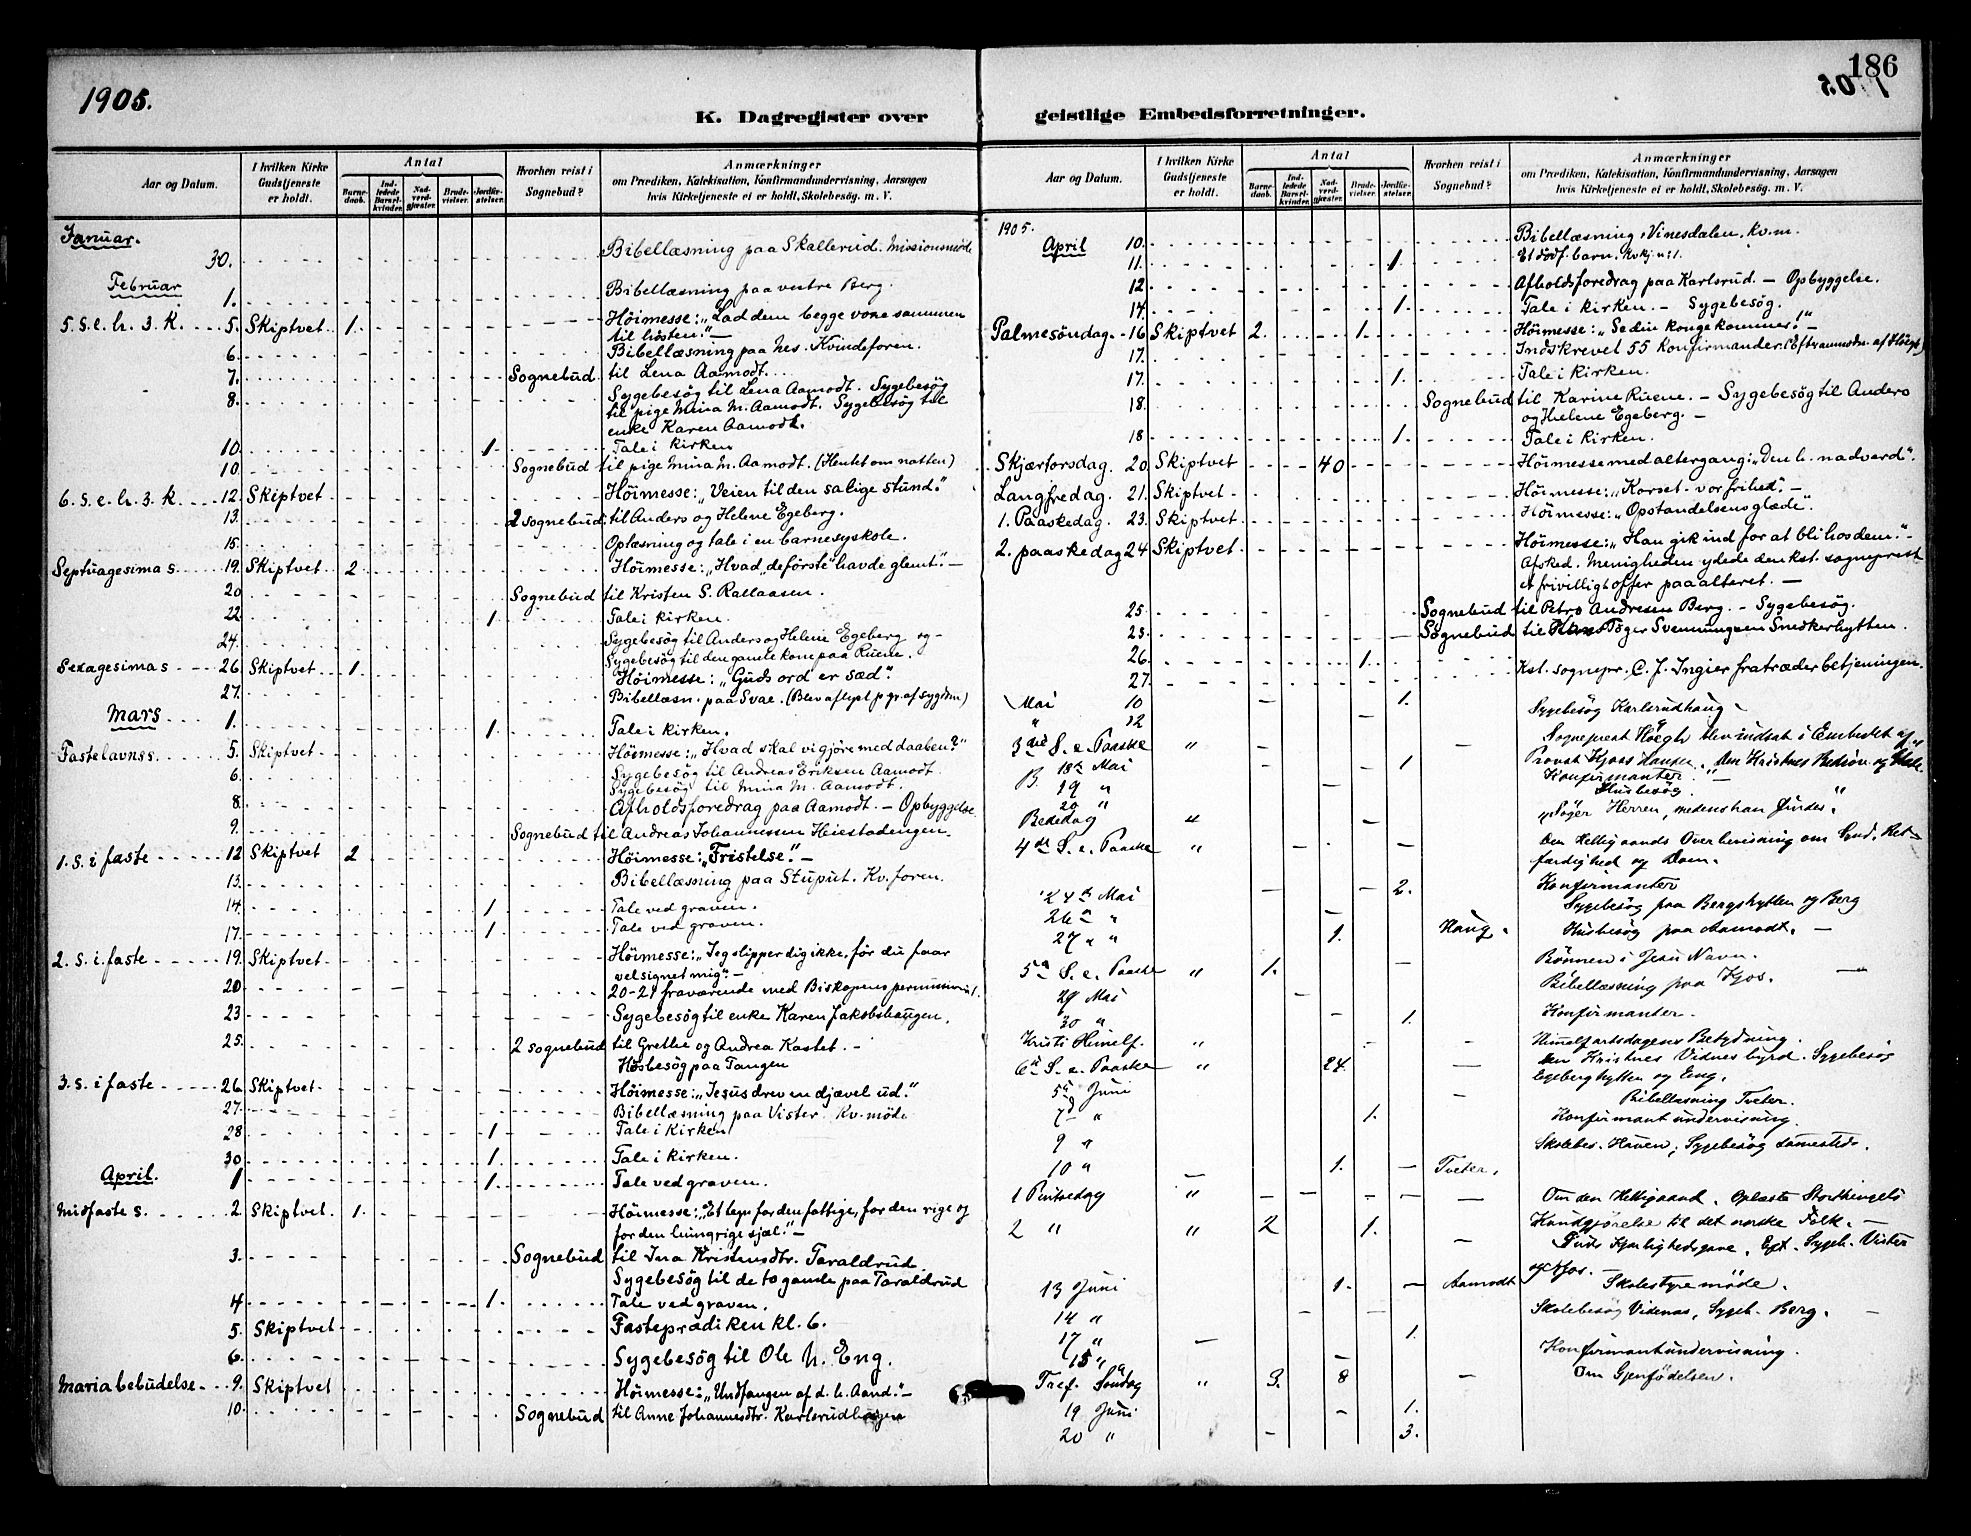 1905.
186
K. Dagregister over geistlige Embedsforretninger.
Aar og Datum.
I hvilken Kirke Gudstjeneste er holdt.
Antal
Barne-daab.
Ind-ledede Barsel-kvinder.
Nad-verd-gjæster.
Brude-vielser.
Jordfæ-stelser.
Hvorhen reist i Sognebud?
Anmærkninger
om Prædiken, Katekisation, Konfirmandundervisning, Aarsagen
hvis Kirketjeneste ei er holdt, Skolebesøg. m. V.
Januar.
30. Bibellæsning paa Skallerud. Missionsmøde
Februar
1. Bibellæsning paa vestre Berg.
5. S. e. h. 3. K. 5. Skiptvet 1. Höimesse: „Lad dem begge voxe sammen
til hösten!" —
6. Bibellæsning paa Nes. Kvindeforen.
7. Sognebud til Lena Aamodt.
8. Sygebesög til Lena Aamodt. Sygebesög
til pige Mina M. Aamodt. Sygebesög til
enke Karen Aamodt.
10. 1 Tale i kirken
10. Sognebud til pige Mina M. Aamodt. (Hentet om natten)
6. S. e. h. 3. K. 12. Skiptvet Höimesse: „Veien til den salige stund."
13. 2 sognebud til Anders og Helene Egeberg.
15. Oplæsning og tale i en barnesyskole.
Septuagesima s. 19. Skiptvet 2 Höimesse: „Hvad „de förste" havde glemt." —
20 Sognebud til Kristen S. Rallaasen.
22. 1 Tale i kirken.
24. Sygebesög til Anders og Helene Egeberg og
Sygebesög til den gamle kone paa Ruene.
Sexagesima s 26 Skiptvet 1. Höimesse: „Guds ord er sæd."
27. Bibellæsn. paa Svae. (Blev aflyst p. gr. af sygdom)
Mars 1. 1 Tale i kirken.
Fastelavns s. 5. Skiptvet Höimesse: „Hvad skal vi gjöre med daaben?"
6. Sygebesög til Andreas Eriksen Aamodt.
Sygebesög til Mina M. Aamodt.
8. Afholdsforedrag paa Aamodt. — Opbyggelse
9. Sognebud til Andreas Johannessen Heiestadengen.
1. s. i faste 12 Skiptvet 2 Höimesse: „Fristelse." —
13. Bibellæsning paa Stuput. Kv. foren.
14. 1 Tale ved graven.
17. 1 Tale ved graven.
2. S. i. faste 19. Skiptvet Höimesse: „Jeg slipper dig ikke, för du faar
velsignet mig". —
20 20-21 fraværende med Biskopens permission.
23 Sygebesög til enke Karen Jakobshaugen.
25. 2 sognebud til Grethe og Andrea Kastet. —
Husbesög paa Tangen
3. s. i faste 26. Skiptvet Höimesse: „Jesus drev en djævel ud."
27. Bibellæsning paa Vister. Kv. möde
28 1 Tale i Kirken
30 1 Tale i kirken.
April. 1 1 Tale ved graven.
Midfaste s. 2. Skiptvet. 1. Höimesse: „Et tegn for den fattige, for den rige og
for den hungrige sjæl." —
3. Sognebud til Ina Kristensdtr. Taraldrud
Sygebesög til de to gamle paa Taraldrud
4 1 Tale ved graven.
5. Skiptvet Fasteprædiken kl. 6.
6. Sygebesög til Ole N. Eng.
Maria bebudelse 9. Skiptvet Höimesse: „Undfangen af d. h. Aand." —
10. Sognebud til Anne Johannesdtr. Karlsrudhagen
geistlige Embedsforretninger.
Aar og Datum.
I hvilken Kirke Gudstjeneste er holdt.
Antal
Barne-daab.
Ind-ledede Barsel-kvinder.
Nad-verd-gjæster.
Brude-vielser.
Jordfæ-stelser.
Hvorhen reist i Sognebud?
Anmærkninger
om Prædiken, Katekisation, Konfirmandundervisning, Aarsagen
hvis Kirketjeneste ei er holdt, Skolebesøg. m. V.
1905.
April 10. Bibellæsning i Vinesdalen. Kv. m.
11. 1. Et dödf. barn.
12 Afholdsforedrag paa Karlsrud. — Opbyggelse.
14. 1. Tale i kirken. — Sygebesög.
Palmesöndag. 16 Skiptvet 2. 1. Höimesse: „Se din konge kommer!" —
17. Indskrevet 55 konfirmander.
17. 1. Tale i kirken.
18. Sognebud til Karine Ruene. — Sygebesög til Anders
og Helene Egeberg. —
18 1. Tale i kirken.
Skjærtorsdag. 20 Skiptvet 40 Höimesse med altergang: „Den h. nadverd".
Langfredag. 21. Skiptvet Höimesse: „Korset vor frihed." —
1. Paaskedag. 23. Skiptvet Höimesse: „Opstandelsens glæde".
2. paaskedag 24 Skiptvet Höimesse: „Han gik ind for at bli hos dem." —
Afsked. Menigheden ydede den kst. sogneprest
et frivilligt offer paa alteret. —
25. Sognebud til Petro Andresen Berg. — Sygebesög.
25. Sognebud til Töger Svenningsen Snedkerhytten.
26. 1.
27. Kst. sognepr. C. J. Ingier fratræder betjeningen.
Mai 10 1. Sygebesög Karlsrudhaug
" 12
3die S. e. Paaske " Sogneprest Höegh blev indsat i Embedet af
18de Mai 1 Provst
B. 19 " Konfirmanter
20 " Husbesög.
Bededag " „Söger Herren, medens han findes."
4de S. e. Paaske " Den Helligaands Overbevisning om Synd, Ret-
færdighed og Dom.
24de Mai 2. Konfirmanter
26de " Sygebesög paa Bergshytten og Berg
27 " " 1. Haug. Husbesög paa Aamodt. —
5te S. e. Paaske " 1. Bönnen i Jesu Navn.
29 Mai Bibellæsning paa Kjos.
30 " 1. Konfirmanter.
Kristi Himelf. " Himelfartsdagens Betydning.
6te S. e. Paaske " 24. Den Kristnes Vidnesbyrd. Sygebesög
Egeberghytten og Eng.
5te Juni Bibellæsning Tveter.
7de " 1. Konfirmantundervisning.
9 " Skolebes. Haven, Sygebesög sammesteds.
10 " 1. Tveter.
1 Pintsedag " Om den Helligaand. Oplæste Storthingets
Kundgjörelse til det norske Folk. —
2 " " 2 1. Guds Kjærlighedsgave. Sygeb. Vister
og Kjos. —
13 Juni 1. Aamodt Skolestyremöde.
14 " Skolebesög Vidnæs, Sygeb. Berg.
17 " 1.
15 " Konfirmantundervisning.
Tref. Söndag " 3. 8 Om Gjenfödelsen.
19 Juni 1.
20 " 3.